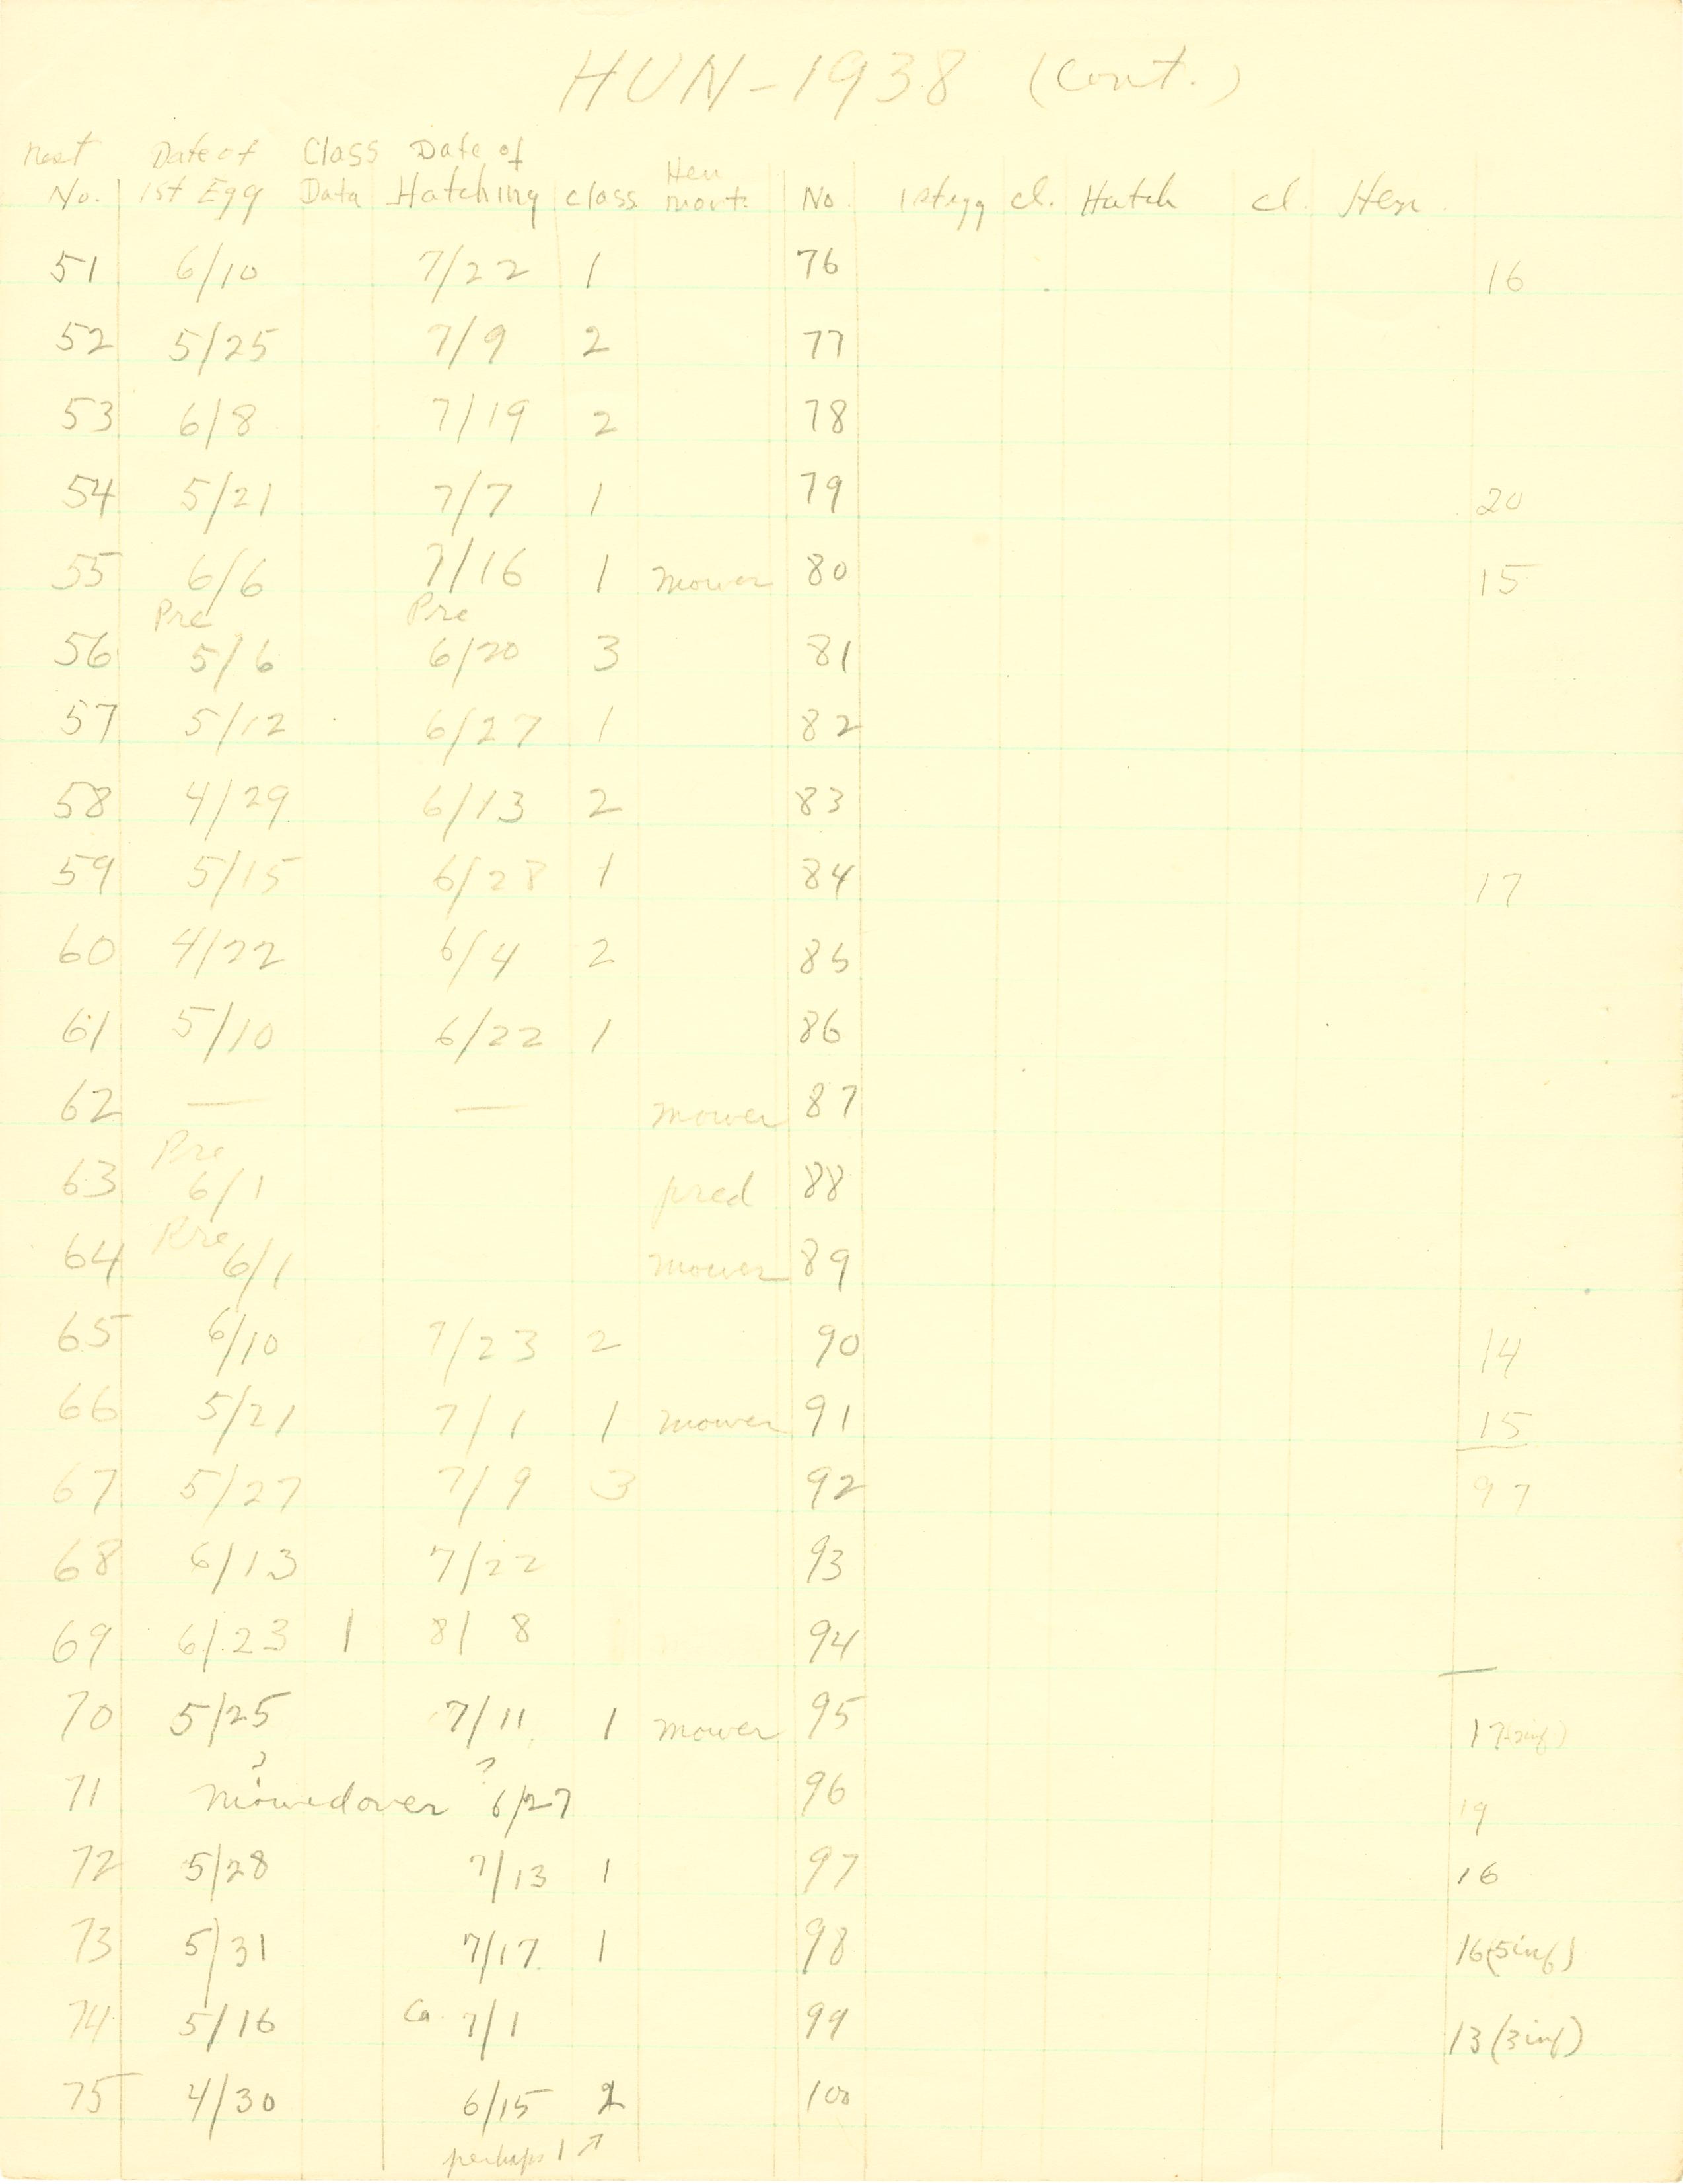 HUN - 1938 (Cont.)
Nest Date of Class Date of Hen
No. 1st Egg Data Hatching class mort. No. 1st egg cl. Hatch cl. Hen
51 6/10 7/22 1 76 16
52 5/25 7/9 2 77
53 6/8 7/19 2 78
54 5/21 7/7 1 79 20
55 6/6 7/16 1 mower 80 15
Pre Pre
56 5/6 6/20 3 81
57 5/12 6/27 1 82
58 4/29 6/13 2 83
59 5/15 6/28 1 84 17
60 4/22 6/4 2 85
61 5/10 6/22 1 86
62 — — mower 87
Pre
63 6/1 pred 88
Pre
64 6/1 mower 89
65 6/10 7/23 2 90 14
66 5/21 7/1 1 mower 91 15
67 5/27 7/9 3 92 97
68 6/13 7/22 93
69 6/23 1 8/8 94
70 5/25 7/11 1 mower 95 17
? ?
71 mowed over 6/27 96 19
72 5/28 7/13 1 97 16
73 5/31 7/17 1 98 16 (5 inf)
74 5/16 Ca. 7/1 99 13 (3 inf)
75 4/30 6/15 2 100
perhaps 1 ↗